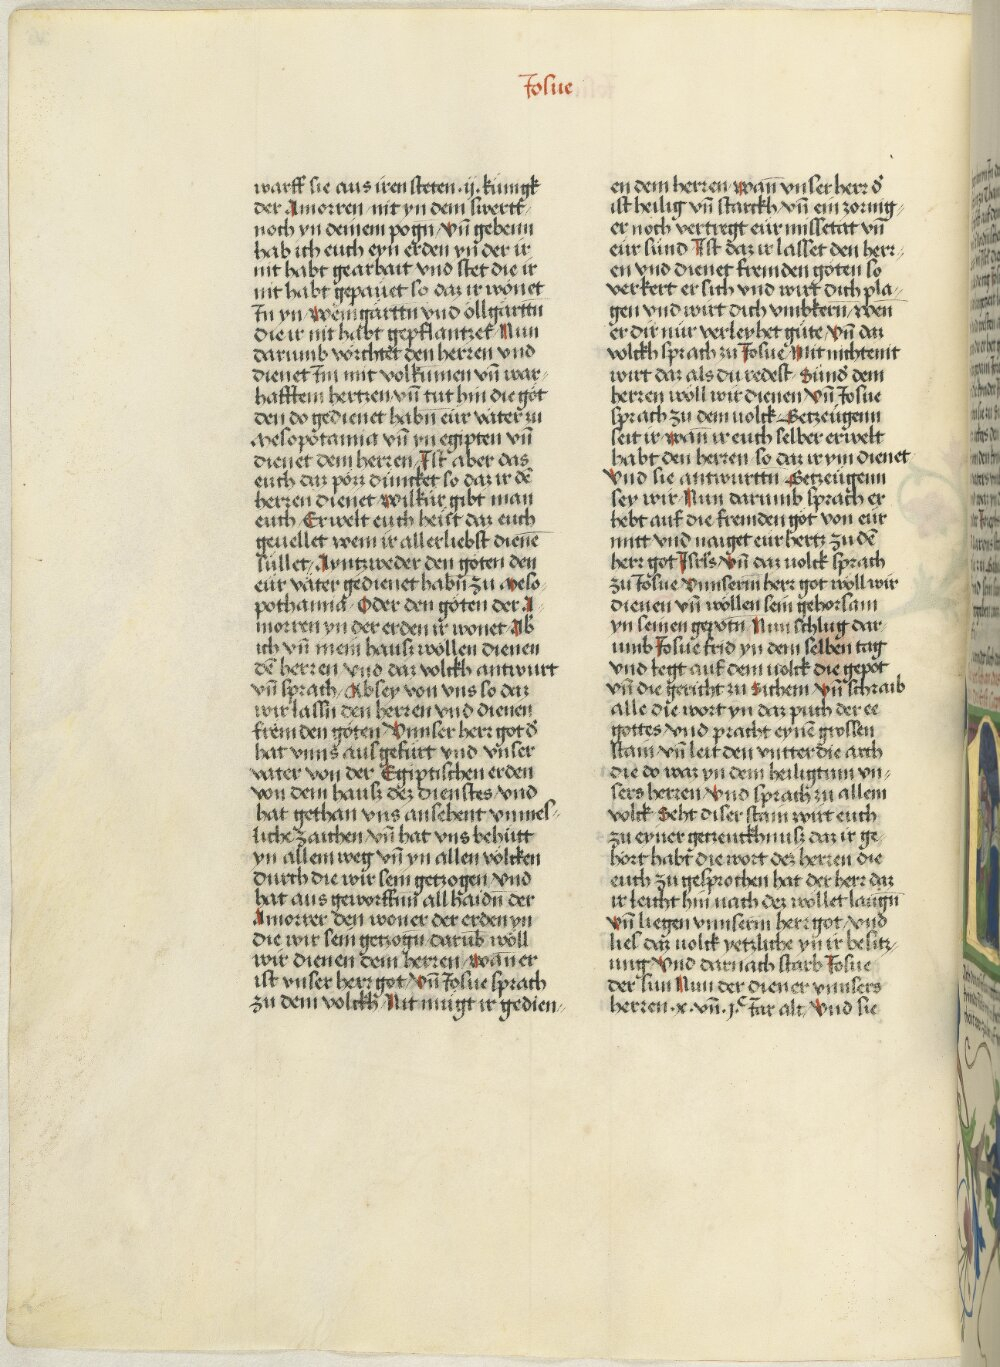 Josue
warff sie aus iren steten .ij. kunigk
der Amorren / nit yn dem swertt /
noch yn deinem pogn̄ / Vn̄ gebenn
hab ich euch eyn erden yn der ir
nit habt gearbait vnd stet die ir
nit habt gepauet so daz ir wonet
Jn yn / Weingarttn̄ vnd ollgarttn̄
die ir nit habt gepflantzet / Nun
darumb vorchtet den herren vnd
dienet Jm mit volkumen vn̄ war¬
hafftem hertzen / vn̄ tut hin die göt
den do gedienet habn̄ eur väter zu
Mesopotamia vn̄ yn egipten vn̄
dienet dem herren / Ist aber das
euch daz pözz duncket so daz ir dē
herren dienet / Wilkur gibt man
euch / Erwelt euch heut daz euch
geuellet wem ir allerliebst dienē
sullet / Ayntzweder den göten den
eur väter gedienet habn̄ zu Meso¬
pothamia / Oder den göten der A¬
morren yn der erden ir wonet / Ab
ich vn̄ mein hausz wöllen dienen
dē herren / vnd daz volckh antwurt
vn̄ sprach / Ab sey von vns so daz
wir lassn̄ den herren vnd dienen
fremden göten / Vnnser herr got d̄
hat vnns aus gefürt vnd vnser
väter von der Egiptischen erden
von dem hausz dez dienstes / vnd
hat gethan vns ansehent vnmes¬
liche zaichen / vn̄ hat vns behütt
yn allem weg vn̄ yn allen völcken
durch die wir sein getzogen / vnd
hat aus geworffnn̄ all haidn̄ der
Amorrer den woner der erden yn
die wir sein getzogn̄ darūb wöll
wir dienen dem herren / wan̄ er
ist vnser herr got / Vn̄ Josue sprach
zu dem volckh / Nit mügt ir gedien¬
en dem herren / wan̄ vnser herr d̄
ist heilig vn̄ starckh / vn̄ ein zornig¬
er noch vertregt eur missetat vn̄
eur sünd / Ist daz ir lasset den herr¬
en vnd dienet fremden göten so
verkert er sich vnd wirt dich pla¬
gen vnd wirt dich vmbkern̄ / wen̄
er dir nur verleyhet güte / Vn̄ daz
volckh sprach zu Josue / Mit nichte nit
wirt daz als du redest / Sūnd̄ dem
herren wöll wir dienen / Vn̄ Josue
sprach zu dem uolck / Getzeugenn
seit ir / wan̄ ir euch selber erwelt
habt den herren / so daz ir ym dienet
Vnd sie antwurttn̄ / Getzeugenn
sey wir / Nun darumb sprach er
hebt auf die fremden göt von eur
mitt vnd naiget eur hertz zu dē
herr got Isrl̄s / Vn̄ daz uolck sprach
zu Josue / Vnnserm̄ herr got wöll wir
dienen vn̄ wöllen sein gehorsam
yn seinen gepotn̄ / Nun schlug dar¬
umb Josue frid yn dem selben tag
vnd legt auf dem uolck die gepot
vn̄ die gericht zu Sichem / Vn̄ schraib
alle die wort yn daz puch der ee
gottes / vnd pracht eynē grossen
stain vn̄ leit den vntter die arch
die do waz yn dem heiligtum vn¬
sers herren / Vnd sprach zu allem
volck / Seht diser stain wirt euch
zu eyner getzeuckhnusz daz ir ge¬
hört habt die wort dez herren die
euch zu gesprochen hat der herr daz
ir leicht hin nach dez wöllet laugn̄
Vn̄ liegen vnnserm herr got / vnd
lies daz uolck yetzliche yn ir besitz¬
ung / Vnd darnach starb Josue
der sun Nun der diener vnnsers
herren .x. vn̄ .j.c Jar alt / Vnd sie